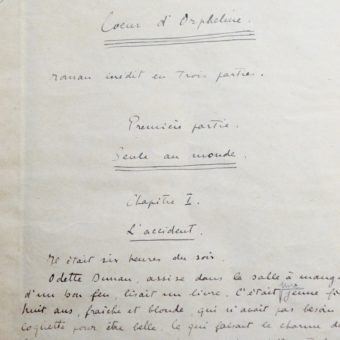 Coeur d'Orpheline.
roman inédit en trois parties.
Première partie.
Seule au monde.
Chapitre I.
L'accident.
Il était six heures du soir.
Odette Dunan, assise dans la salle à mang
d'un bon feu, lisait un livre. C'était une jeune fi
huit ans, fraîche et blonde, qui n'avait pas besoin
coquette pour être belle. Ce qui faisait le charme de